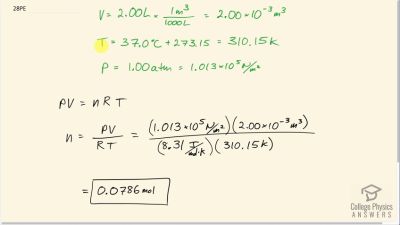 28PE
V = 2.00L × 1m³/1000L = 2.00 × 10⁻³ m³
T = 37.0°C + 273.15 = 310.15K
P = 1.00atm = 1.013 × 10⁵ N/m²
PV = nRT
n = PV/RT = (1.013 × 10⁵ N/m²)(2.00 × 10⁻³ m³)/(8.31 J/mol·K)(310.15K)
= 0.0786 mol
College Physics
ANSWERS